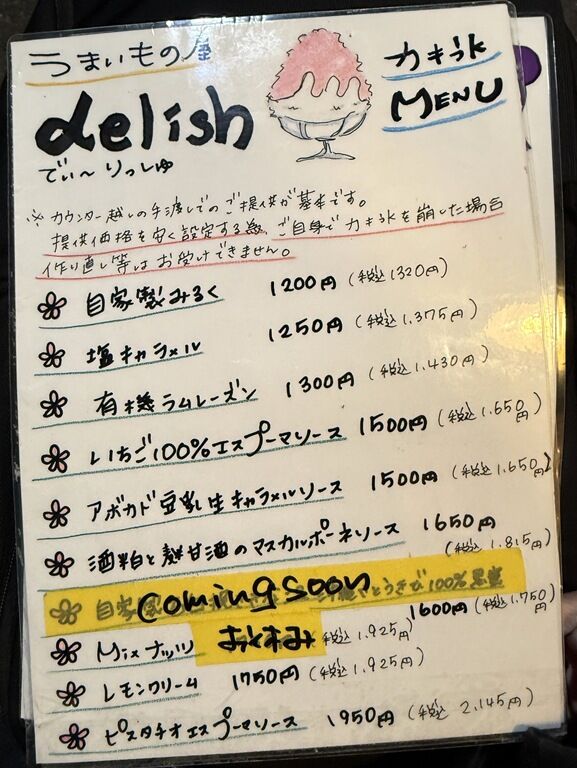 うまいもの屋
delish
でぃ〜りっしゅ
カキ氷
MENU
※カウンター越しの手渡しでのご提供が基本です。
提供価格を安く設定する為、ご自身でカキ氷を崩した場合
作り直し等はお受けできません。
自家製みるく 1200円 (税込1320円)
塩キャラメル 1250円 (税込1.375円)
有機ラムレーズン 1300円 (税込1.430円)
いちご100%エスプーマソース 1500円 (税込1.650円)
アボカド豆乳生キャラメルソース 1500円 (税込1.650円)
酒粕と麹甘酒のマスカルポーネソース 1650円 (税込1.815円)
Coming soon
自家製 さとうきび100%黒蜜 1600円 (税込1.750円)
Mixナッツ おやすみ (税込1.925円)
レモンクリーム 1750円 (税込1.925円)
ピスタチオエスプーマソース 1950円 (税込 2.145円)